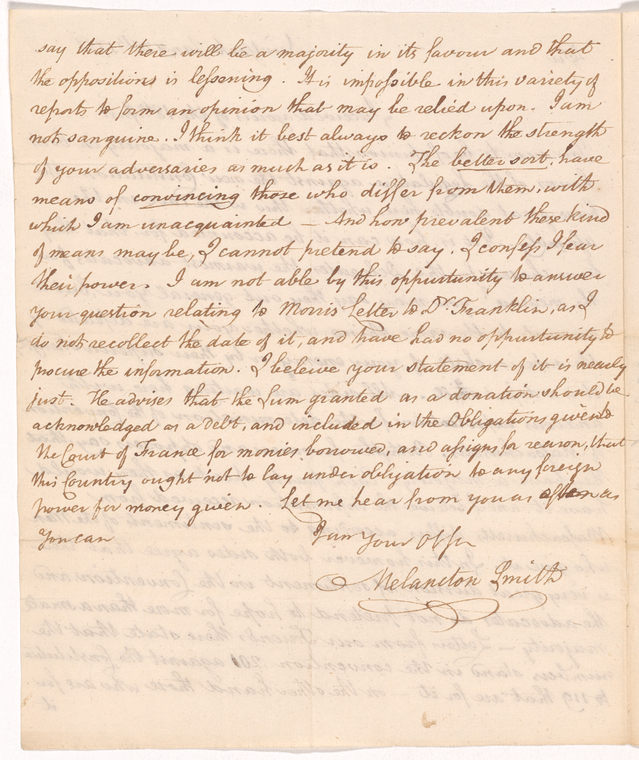 say that there will be a majority in its favour and that
the oppositions is lessening. It is impossible in this variety of
reports to form an opinion that may be relied upon. I am
not sanguine. I think it best always to reckon the strength
of your adversaries as much as it is. The better sort, have
means of convincing those who differ from them, with
which I am unacquainted — And how prevalent these kind
of means may be, I cannot pretend to say. I confess I fear
their power. I am not able by this oppurtunity to answer
your question relating to Morris Letter to Dr. Franklin, as I
do not recollect the date of it, and have had no oppurtunity to
procure the information. I beleive your statement of it is nearly
just. He advises that the Sum granted as a donation should be
acknowledged as a debt, and included in the Obligations given to
the Court of France for monies borrowed, and assigns for reason, that
this Country ought not to lay under obligation to any foreign
power for money given. Let me hear from you as often as
you can
I am Your Affe
Melancton Smith